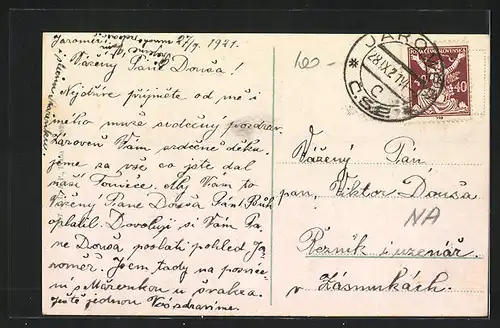 Jaroměř
27/9. 1921.
Vážený Pane Douša!
Nejdříve přijměte od mě i
mého muže srdečný pozdrav
Zároveň Vám srdečně děku-
jeme za vše co jste dal
naší Tonice. Aby Vám to
Vážený Pane Douša Pán Bůh
oplatil. Dovoluji si Vám Pa-
ne Douša poslati pohled Ja-
roměř. Jsem tady na posvíce-
ní s Mařenkou u švakra.
Ještě jednou Vás zdravíme.
JAROMĚŘ
ČSP
POŠTA ČESKOSLOVENSKÁ
40
Vážený Pán
pan, Viktor Douša
NA
Řezník i uzenář
v Zásmukách.